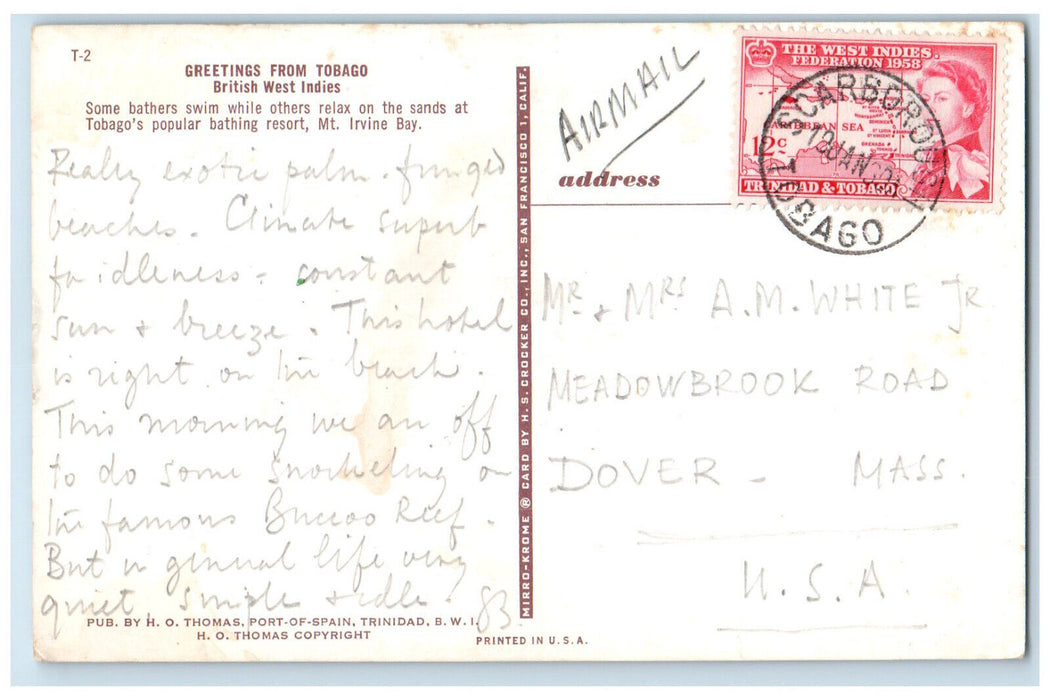 T-2
GREETINGS FROM TOBAGO
British West Indies
Some bathers swim while others relax on the sands at
Tobago's popular bathing resort, Mt. Irvine Bay.
Really exotic palm-fringed
beaches. Climate superb
for idleness - constant
sun & breeze. This hotel
is right on the beach.
This morning we are off
to do some snorkeling on
the famous Buccoo Reef.
But in general life very
quiet, simple & idle.
PUB. BY H. O. THOMAS, PORT-OF-SPAIN, TRINIDAD, B.W.I.
H. O. THOMAS COPYRIGHT
PRINTED IN U.S.A.
MIRRO-KROME ® CARD BY H. S. CROCKER CO., INC., SAN FRANCISCO 1, CALIF.
AIRMAIL
address
THE WEST INDIES.
FEDERATION 1958
CARIBBEAN SEA
12c
TRINIDAD & TOBAGO
SCARBOROUGH
JAN
TOBAGO
MR & MRS A.M. WHITE Jr
MEADOWBROOK ROAD
DOVER - MASS.
U.S.A.